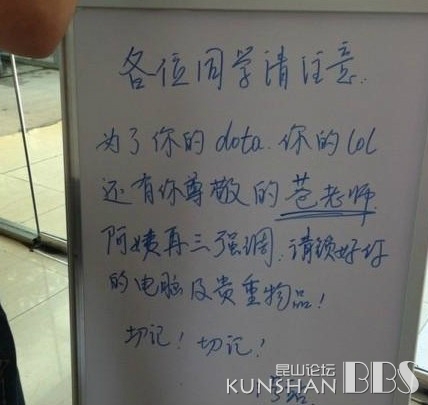 各位同学请注意.
为了你的dota.你的lol
还有你尊敬的苍老师.
阿姨再三强调.请锁好你
的电脑及贵重物品!
切记!切记!
昆山论坛
KUNSHAN BBS